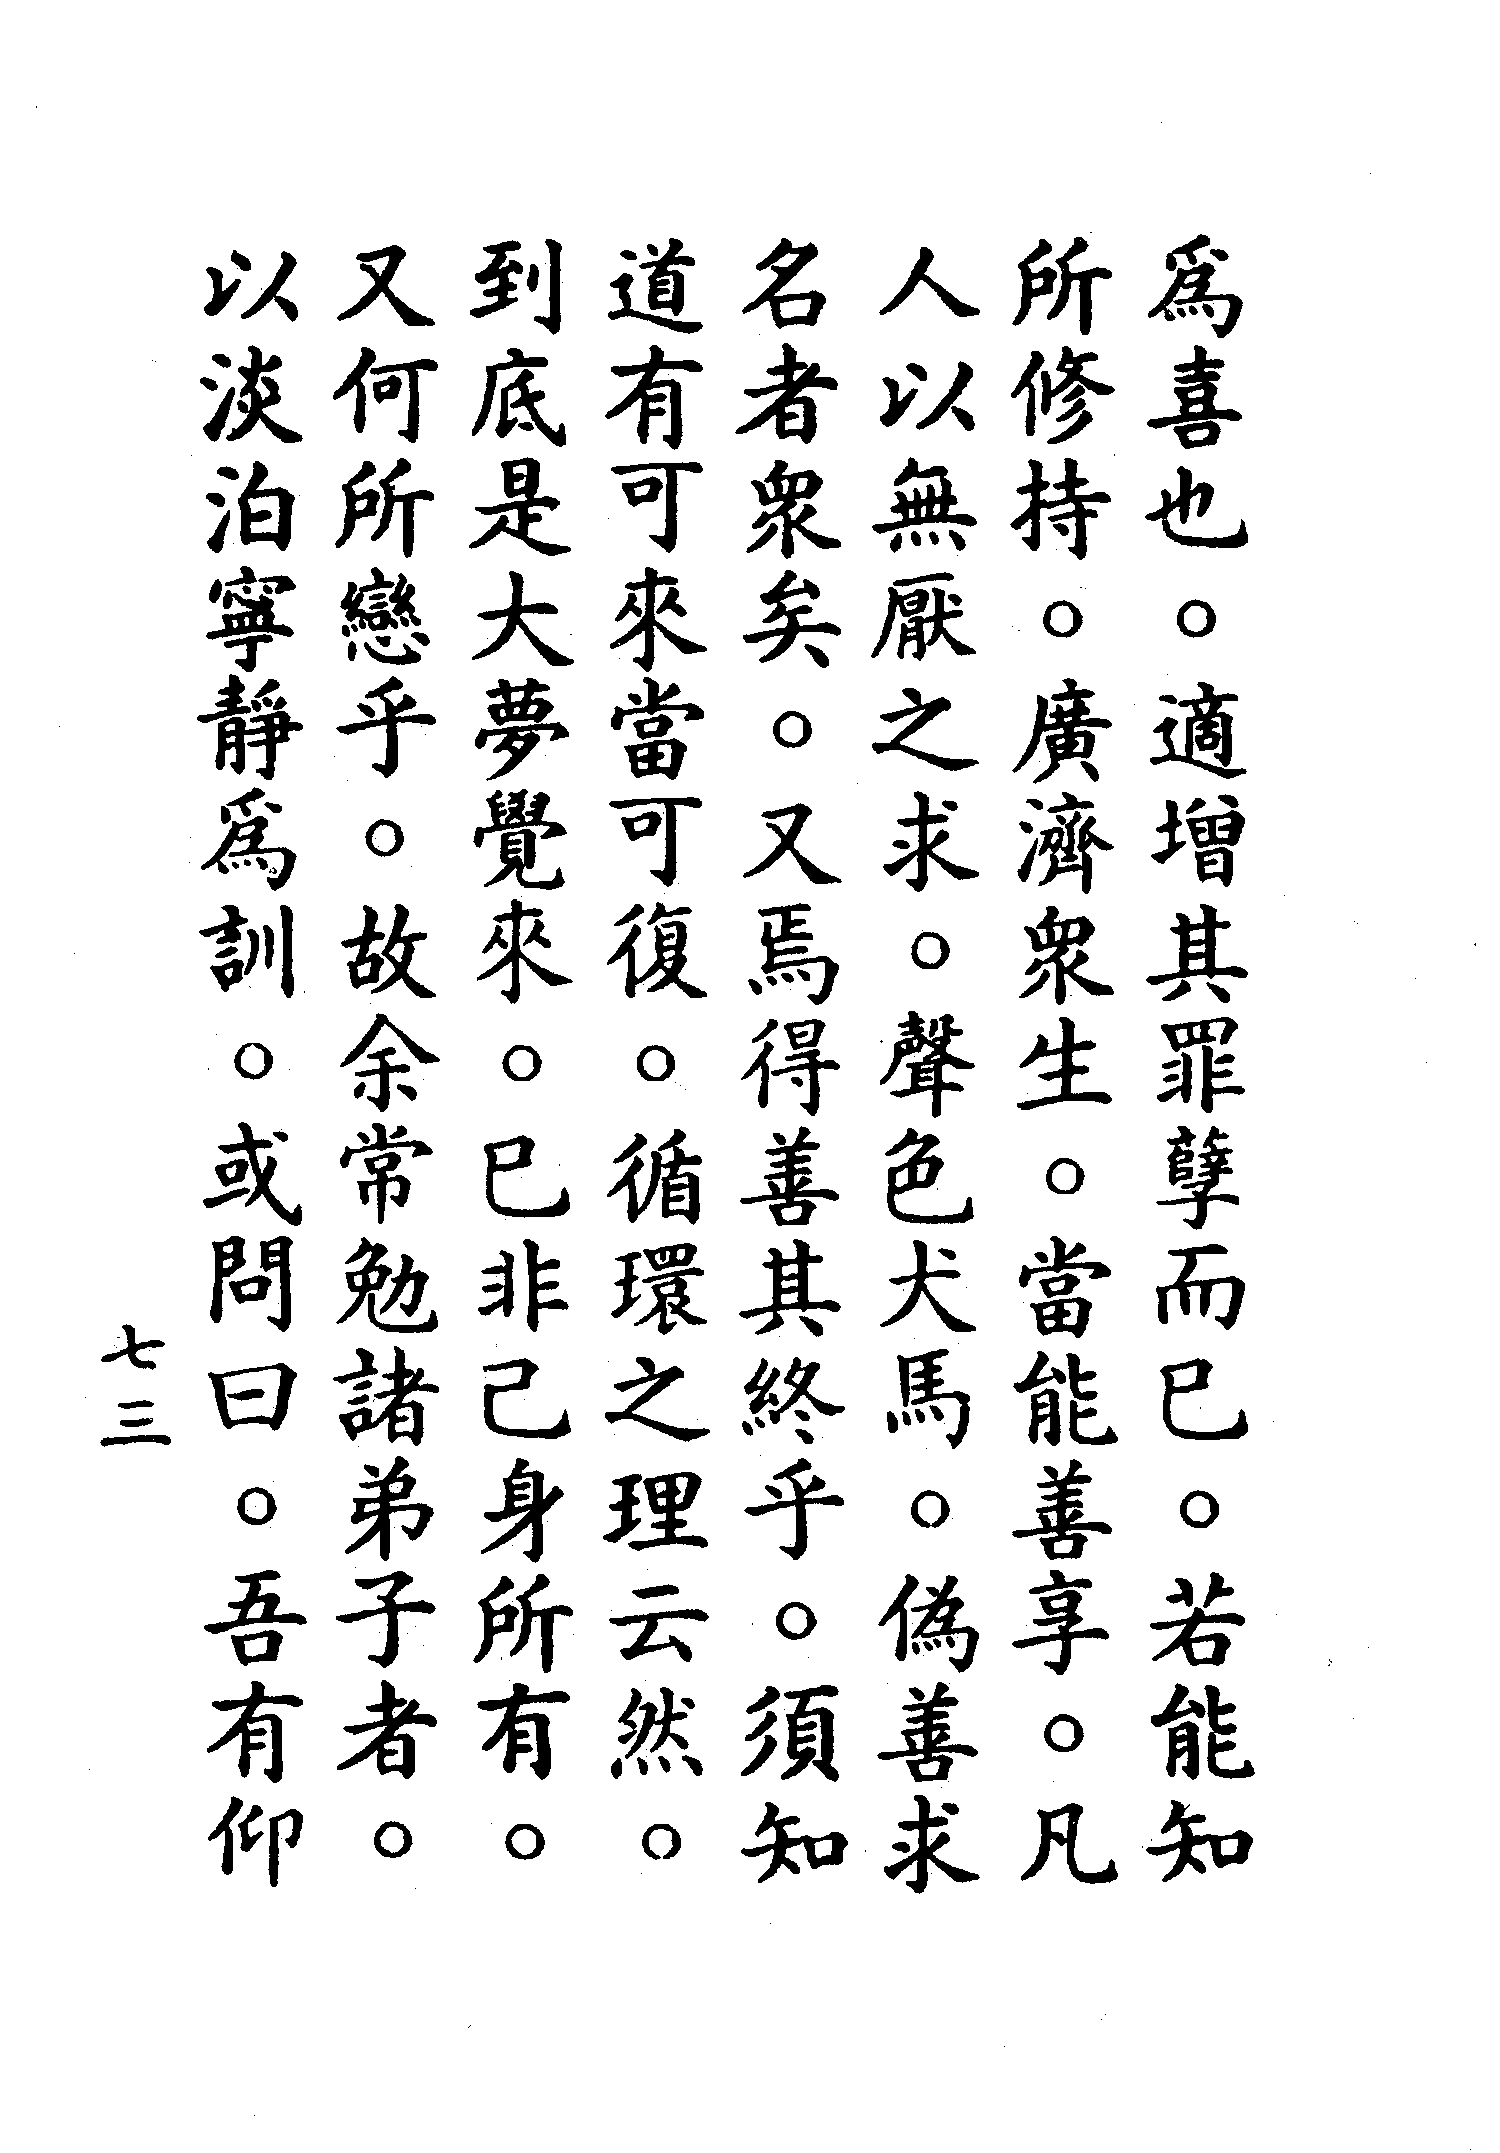 爲喜也。適增其罪孽而已。若能知
所修持。廣濟衆生。當能善享。凡
人以無厭之求。聲色犬馬。偽善求
名者衆矣。又焉得善其終乎。須知
道有可來當可復。循環之理云然。
到底是大夢覺來。已非己身所有。
又何所戀乎。故余常勉諸弟子者。
以淡泊寧靜爲訓。或問曰。吾有仰
七三